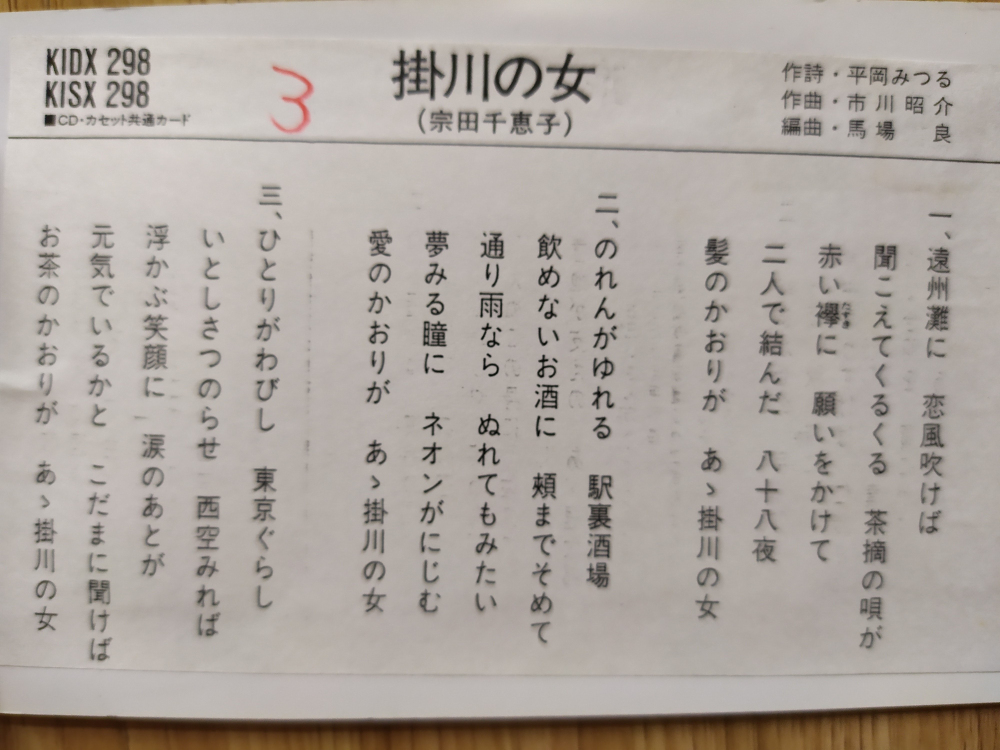 KIDX 298
KISX 298
■CD・カセット共通カード
3
掛川の女
(宗田千恵子)
作詩・平岡みつる
作曲・市川昭介
編曲・馬場 良
一、遠州灘に 恋風吹けば
聞こえてくるくる 茶摘の唄が
赤い襷に 願いをかけて
たすき
二人で結んだ 八十八夜
髪のかおりが あゝ掛川の女
二、のれんがゆれる 駅裏酒場
飲めないお酒に 頬までそめて
通り雨なら ぬれてもみたい
夢みる瞳に ネオンがにじむ
愛のかおりが あゝ掛川の女
三、ひとりがわびし 東京ぐらし
いとしさつのらせ 西空みれば
浮かぶ笑顔に 涙のあとが
元気でいるかと こだまに聞けば
お茶のかおりが あゝ掛川の女